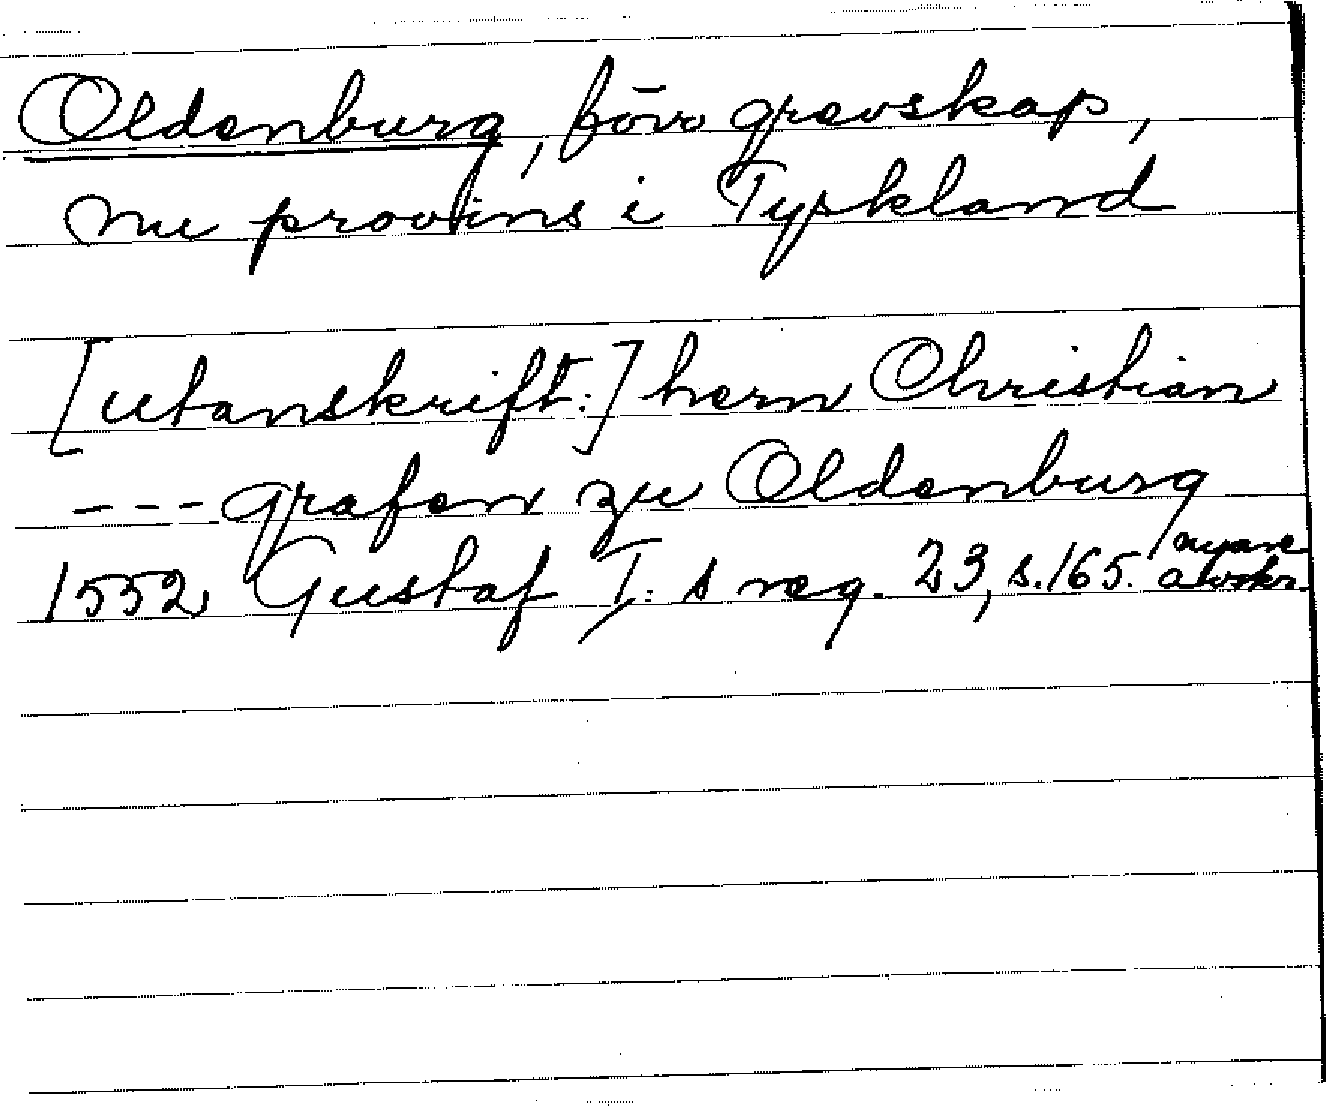 Oldenburg, förr grevskap,
nu provins i Tyskland
[utanskrift:] hern Christian
--- grafen zu Oldenburg
1552 Gustaf I:s reg. 23, s. 165. nyare avskr.